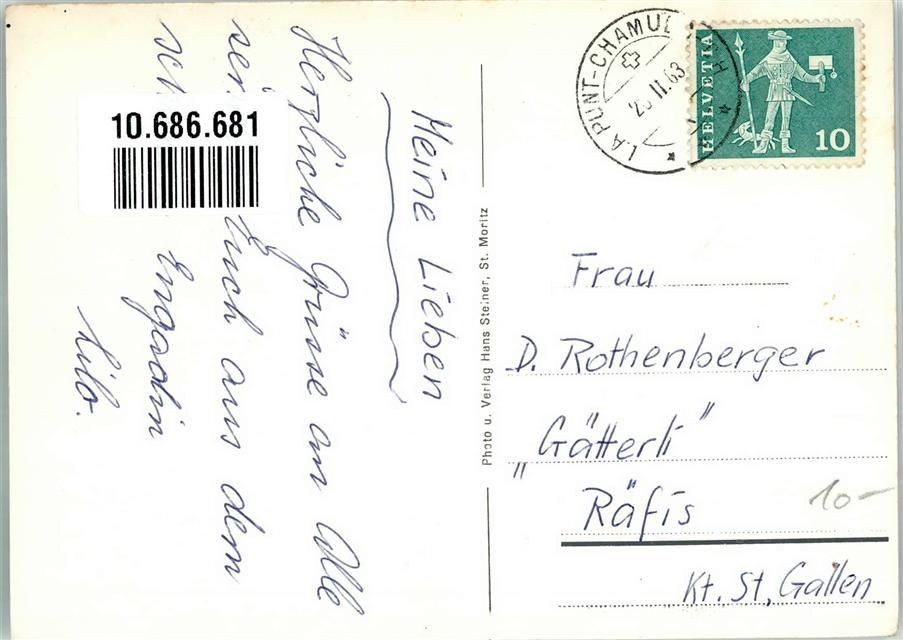 Meine Lieben
Herzliche Grüsse an Alle
Euch aus dem
Engadin
Lilo.
10.686.681
Photo u. Verlag Hans Steiner, St. Moritz
LA PUNT-CHAMUE
II.63
HELVETIA
10
Frau
D. Rothenberger
„Gätterli"
Räfis
Kt. St. Gallen
10-